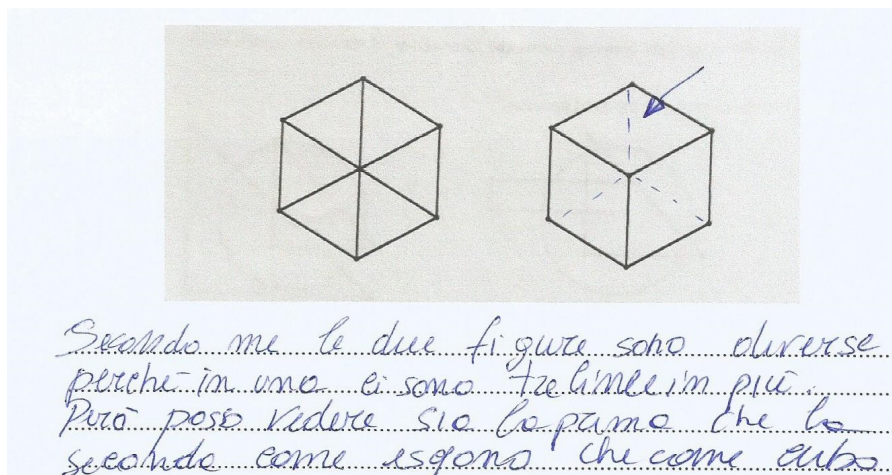 Secondo me le due figure sono diverse
perchè in una ci sono tre linee in più.
Però posso vedere sia la prima che la
seconda come esagono che come cubo